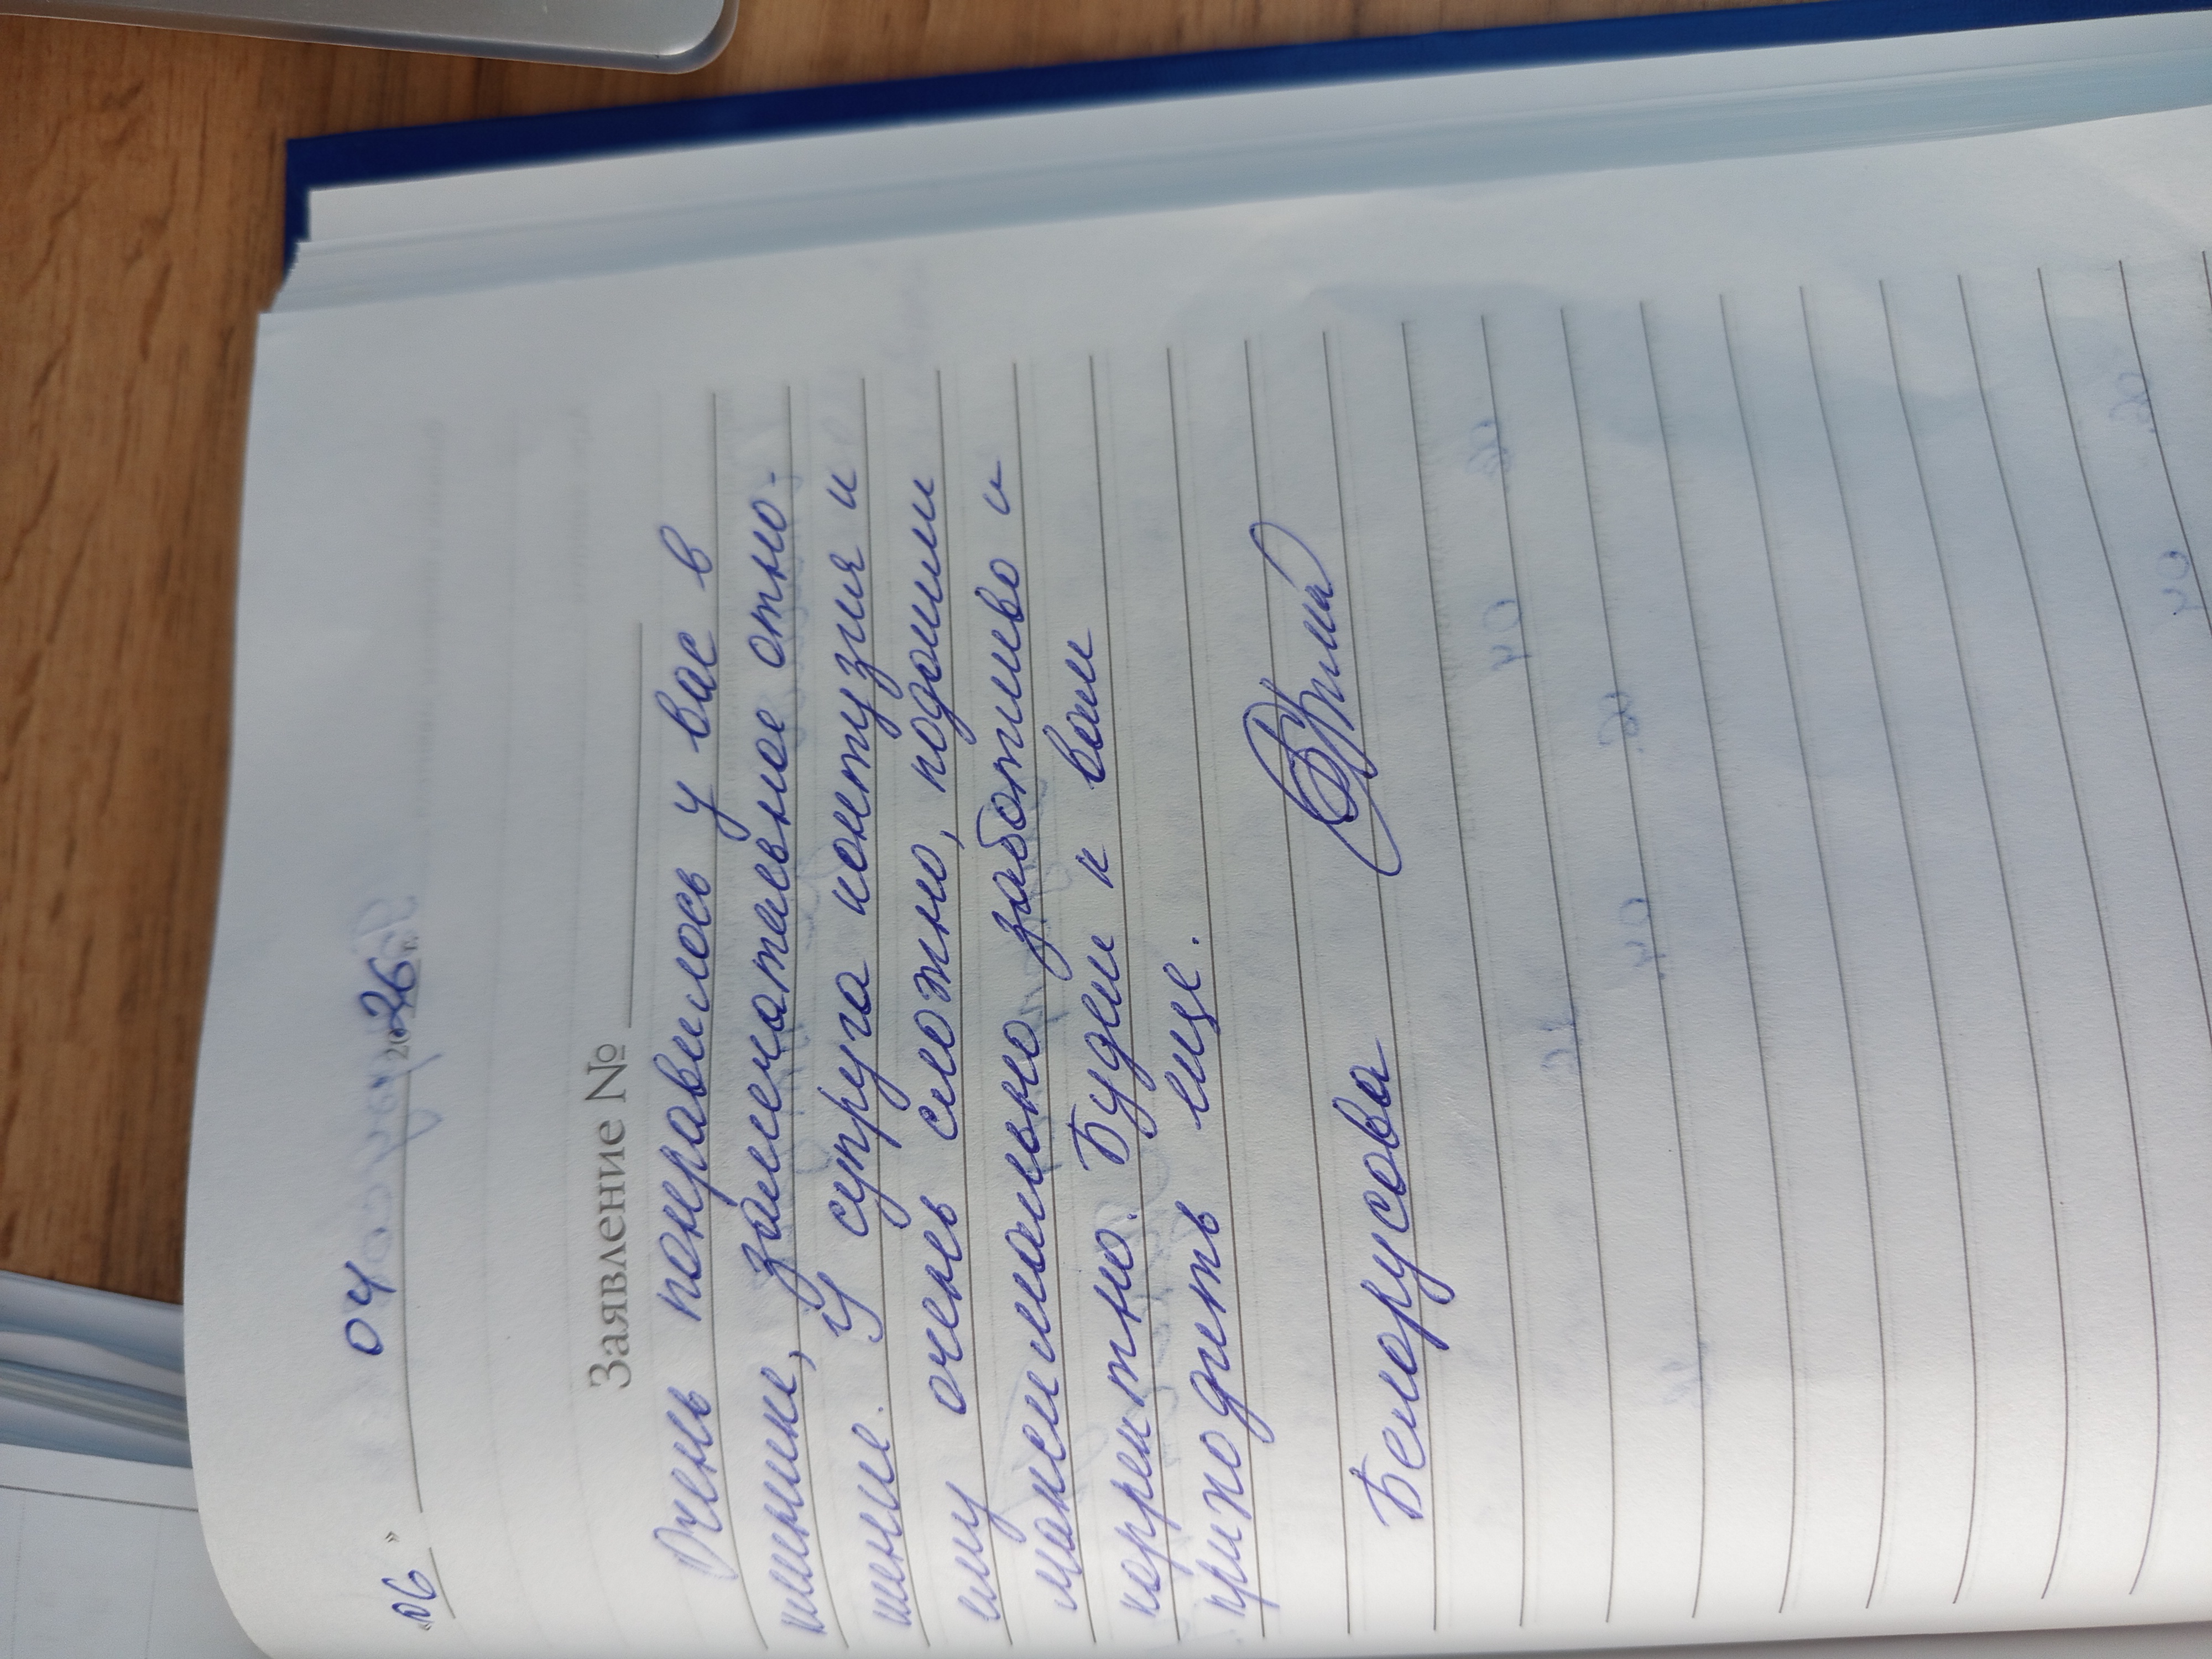 «06» 04 2026 г.
Заявление №
Очень понравилось у вас в
клинике, замечательное отно-
шение. У супруга контузия и
ему очень сложно, подошли
максимально заботливо и
корректно. Будем к вам
приходить еще.
Белорусова